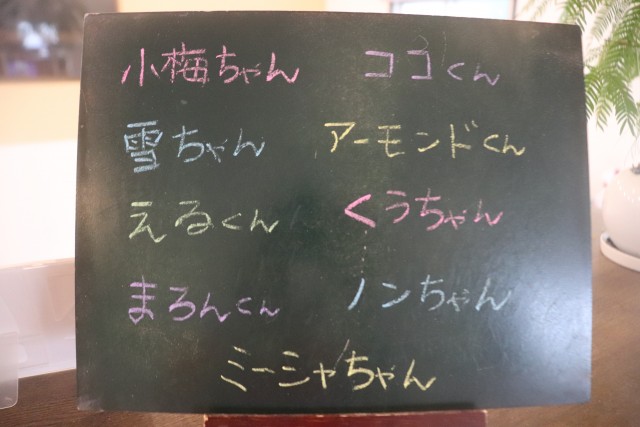 小梅ちゃん ココくん
雪ちゃん アーモンドくん
えるくん くうちゃん
まろんくん ノンちゃん
ミーシャちゃん